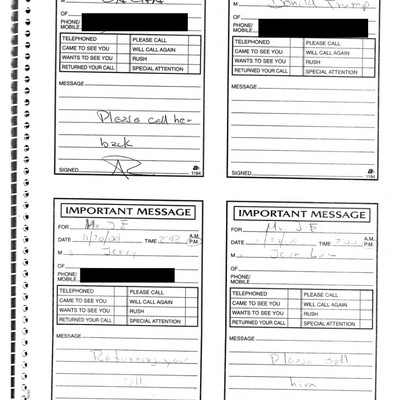 M
OF
PHONE/
MOBILE
TELEPHONED PLEASE CALL
CAME TO SEE YOU WILL CALL AGAIN
WANTS TO SEE YOU RUSH
RETURNED YOUR CALL SPECIAL ATTENTION
MESSAGE
Please call her
back
SIGNED
1184
M Donald Trump
OF
PHONE/
MOBILE
TELEPHONED PLEASE CALL
CAME TO SEE YOU WILL CALL AGAIN
WANTS TO SEE YOU RUSH
RETURNED YOUR CALL SPECIAL ATTENTION
MESSAGE
SIGNED
1184
IMPORTANT MESSAGE
FOR Mr. J E
DATE TIME A.M.
P.M.
M Jerry
OF
PHONE/
MOBILE
TELEPHONED PLEASE CALL
CAME TO SEE YOU WILL CALL AGAIN
WANTS TO SEE YOU RUSH
RETURNED YOUR CALL SPECIAL ATTENTION
MESSAGE
Returning your
call
IMPORTANT MESSAGE
FOR Mr. J E
DATE TIME A.M.
P.M.
M Jean Luc
OF
PHONE/
MOBILE
TELEPHONED PLEASE CALL
CAME TO SEE YOU WILL CALL AGAIN
WANTS TO SEE YOU RUSH
RETURNED YOUR CALL SPECIAL ATTENTION
MESSAGE
Please call
him